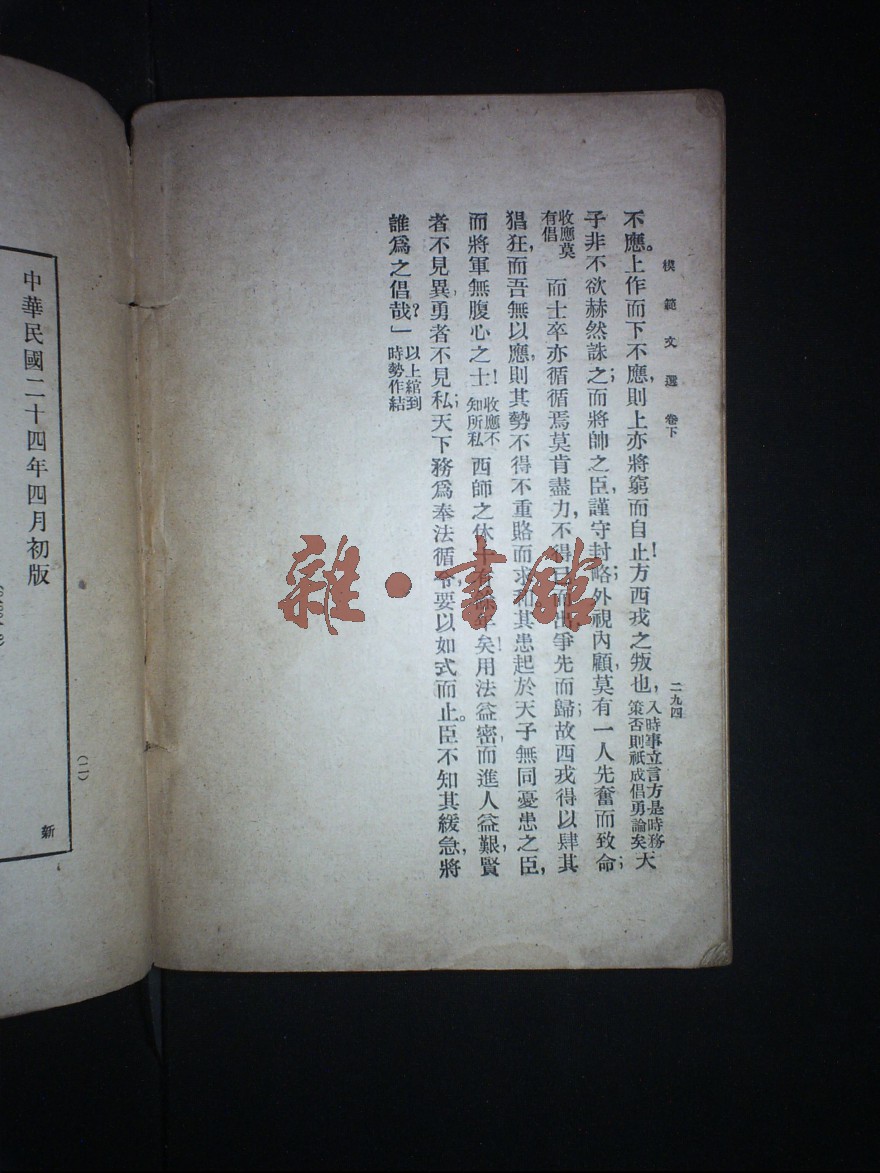 模範文選 卷下 二九四
不應。上作而下不應,則上亦將窮而自止!方西戎之叛也,入時事立言方是時務策否則祇成倡勇論矣天
子非不欲赫然誅之;而將帥之臣,謹守封略;外視內顧,莫有一人先奮而致命;
收應莫有倡 而士卒亦循循焉莫肯盡力,不得已而出,爭先而歸;故西戎得以肆其
猖狂,而吾無以應,則其勢不得不重賂而求和其患起於天子無同憂患之臣,
而將軍無腹心之士!收應不知所私 西師之休十有餘年矣!用法益密,而進人益艱,賢
者不見異,勇者不見私;天下務爲奉法循令,要以如式而止。臣不知其緩急,將
誰爲之倡哉?」以上綰到時勢作結
(二)
新
中華民國二十四年四月初版
雜·書館